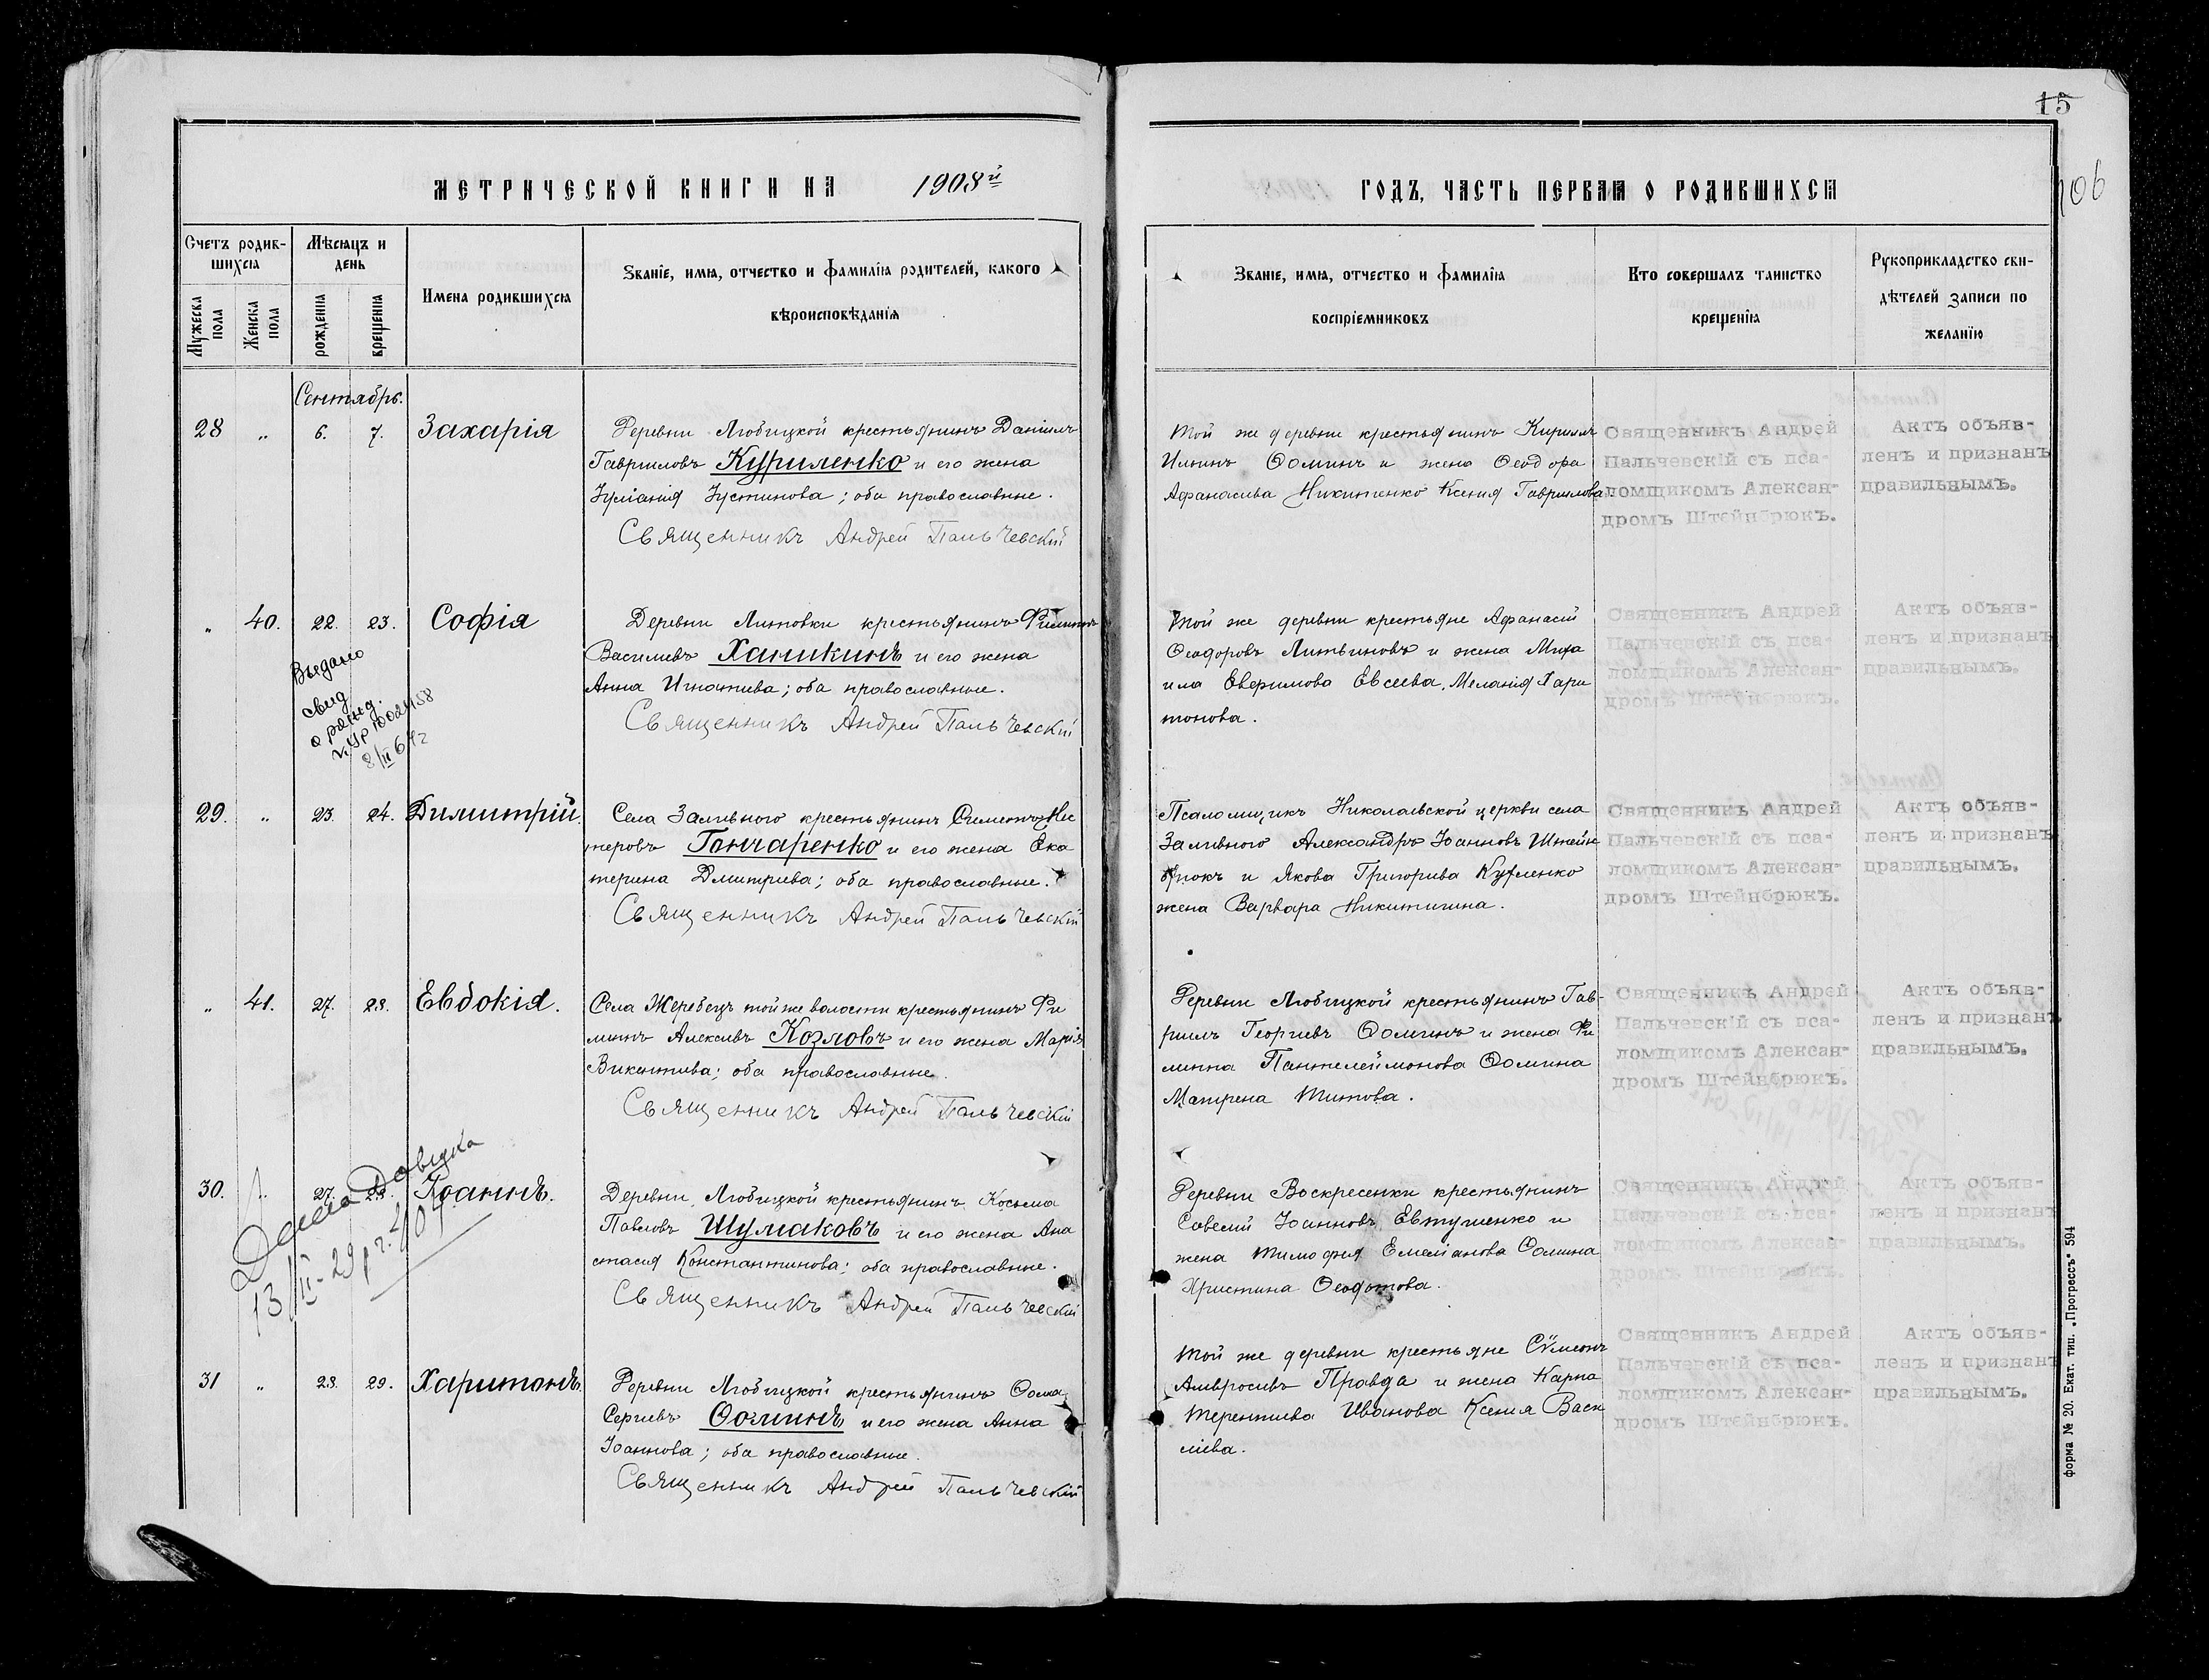 15
106
МЕТРИЧЕСКОЙ КНИГИ НА 1908й ГОДЪ, ЧАСТЬ ПЕРВАЯ О РОДИВШИХСЯ
Счетъ родив-
шихся
Мужеска пола
Женска пола
Мѣсяцъ и
день
рожденія
крещенія
Имена родившихся
Званіе, имя, отчество и фамилія родителей, какого
вѣроисповѣданія
Званіе, имя, отчество и фамилія
воспріемниковъ
Кто совершалъ таинство
крещенія
Рукоприкладство сви-
дѣтелей записи по
желанію
Сентябрь.
28 „ 6. 7. Захарія
Деревни Любицкой крестьянинъ Даніилъ
Гавриловъ Куриленко и его жена
Іуліанія Іустинова; оба православные.
Священникъ Андрей Пальчевскій
Той же деревни крестьянинъ Кириллъ
Ильинъ Ѳоминъ и жена Ѳеодора
Афанасіева Никитенко Ксенія Гаврилова.
Священникъ Андрей
Пальчевскій съ пса-
ломщикомъ Алексан-
дромъ Штейнбрюкъ.
Актъ объяв-
ленъ и признанъ
правильнымъ.
„ 40. 22. 23. Софія
Выдано
свид.
о рожд.
8/II 64г
Деревни Литовки крестьянинъ Филиппъ
Василіевъ Ханикинъ и его жена
Анна Игнатіева; оба православные.
Священникъ Андрей Пальчевскій
Той же деревни крестьяне Афанасій
Ѳеодоровъ Литвиновъ и жена Миха
ила Евфимова Евсеева, Меланія Хари
тонова.
Священникъ Андрей
Пальчевскій съ пса-
ломщикомъ Алексан-
дромъ Штейнбрюкъ.
Актъ объяв-
ленъ и признанъ
правильнымъ.
29. „ 23. 24. Димитрій.
Села Заливного крестьянинъ Симеонъ Нес
теровъ Гончаренко и его жена Ека
терина Дмитріева; оба православные.
Священникъ Андрей Пальчевскій
Псаломщикъ Николаевской церкви села
Заливного Александръ Іоанновъ Штейн
брюкъ и Якова Григоріева Куриленко
жена Варвара Никитична.
Священникъ Андрей
Пальчевскій съ пса-
ломщикомъ Алексан-
дромъ Штейнбрюкъ.
Актъ объяв-
ленъ и признанъ
правильнымъ.
„ 41. 27. 28. Евдокія.
Села Жеребецъ той же волости крестьянинъ Фи
липпъ Алексіевъ Козловъ и его жена Марія
Викентіева; оба православные.
Священникъ Андрей Пальчевскій
Деревни Любицкой крестьянинъ Гав-
риилъ Георгіевъ Ѳоминъ и жена Фи
липпа Пантелеймонова Ѳомина
Матрена Титова.
Священникъ Андрей
Пальчевскій съ пса-
ломщикомъ Алексан-
дромъ Штейнбрюкъ.
Актъ объяв-
ленъ и признанъ
правильнымъ.
30. „ 27. 28. Іоаннъ.
Довидка
13/II-29р.
Деревни Любицкой крестьянинъ Косьма
Павловъ Шумаковъ и его жена Ана
стасія Константинова; оба православные.
Священникъ Андрей Пальчевскій
Деревни Воскресенки крестьянинъ
Савелій Іоанновъ Евтушенко и
жена Тимофея Емеліанова Ѳомина
Христина Ѳеодотова.
Священникъ Андрей
Пальчевскій съ пса-
ломщикомъ Алексан-
дромъ Штейнбрюкъ.
Актъ объяв-
ленъ и признанъ
правильнымъ.
31 „ 28. 29. Харитонъ.
Деревни Любицкой крестьянинъ Ѳома
Сергіевъ Ѳоминъ и его жена Анна
Іоаннова; оба православные.
Священникъ Андрей Пальчевскій
Той же деревни крестьяне Сѵмеонъ
Амвросіевъ Правда и жена Карпа
Терентіева Иванова Ксенія Васи
ліева.
Священникъ Андрей
Пальчевскій съ пса-
ломщикомъ Алексан-
дромъ Штейнбрюкъ.
Актъ объяв-
ленъ и признанъ
правильнымъ.
Форма № 20. Екат. тип. „Прогрессъ“ 594